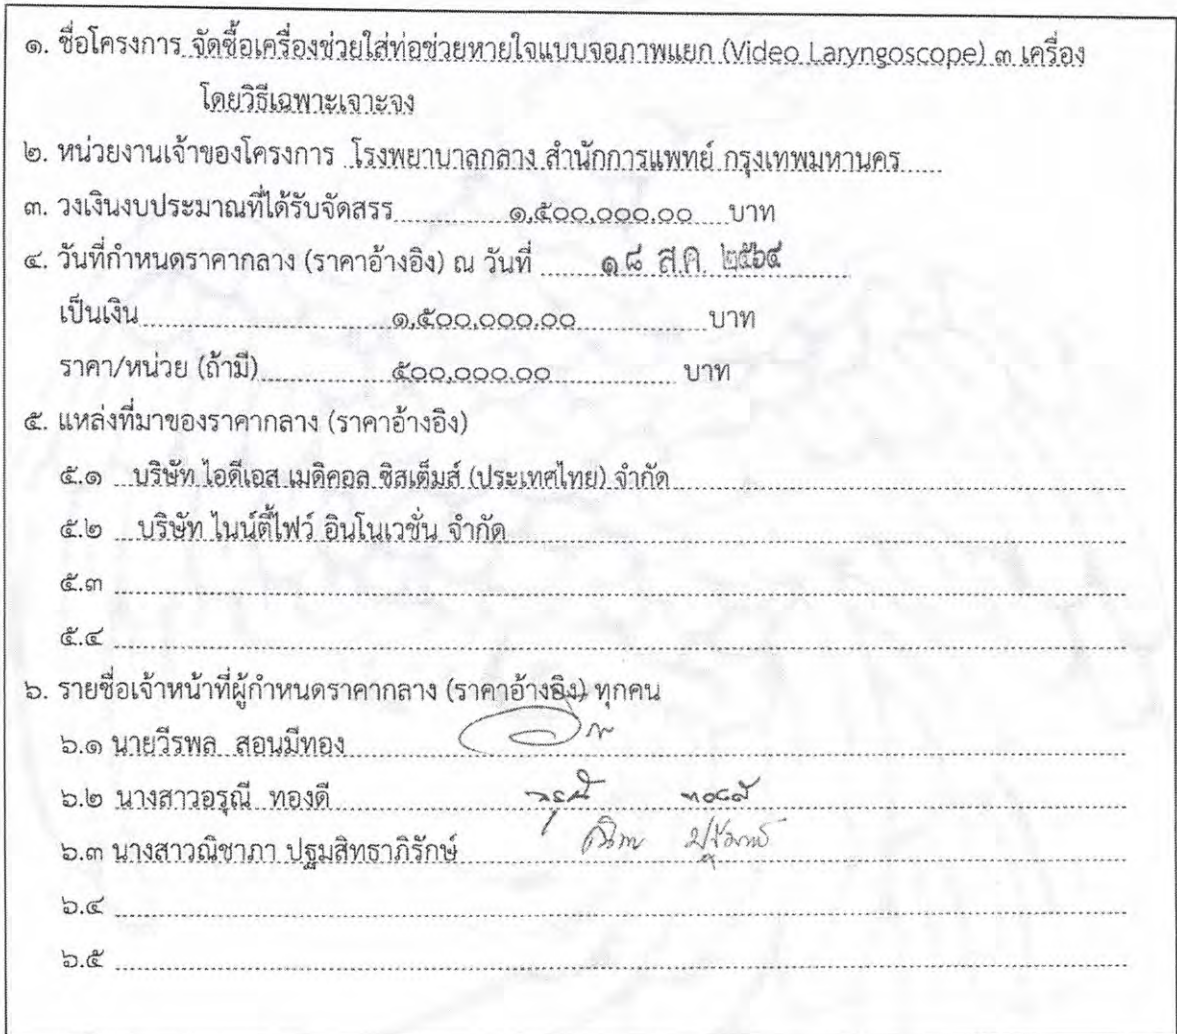 ๑. ชื่อโครงการ จัดซื้อเครื่องช่วยใส่ท่อช่วยหายใจแบบจอภาพแยก (Video Laryngoscope) ๓ เครื่อง
โดยวิธีเฉพาะเจาะจง
๒. หน่วยงานเจ้าของโครงการ โรงพยาบาลกลาง สำนักการแพทย์ กรุงเทพมหานคร
๓. วงเงินงบประมาณที่ได้รับจัดสรร ๑,๕๐๐,๐๐๐.๐๐ บาท
๔. วันที่กำหนดราคากลาง (ราคาอ้างอิง) ณ วันที่ ๑๘ ส.ค. ๒๕๖๔
เป็นเงิน ๑,๕๐๐,๐๐๐.๐๐ บาท
ราคา/หน่วย (ถ้ามี) ๕๐๐,๐๐๐.๐๐ บาท
๕. แหล่งที่มาของราคากลาง (ราคาอ้างอิง)
๕.๑ บริษัท ไอดีเอส เมดิคอล ซิสเต็มส์ (ประเทศไทย) จำกัด
๕.๒ บริษัท ไนน์ตี้ไฟว์ อินโนเวชั่น จำกัด
๕.๓
๕.๔
๖. รายชื่อเจ้าหน้าที่ผู้กำหนดราคากลาง (ราคาอ้างอิง) ทุกคน
๖.๑ นายวีรพล สอนมีทอง
๖.๒ นางสาวอรุณี ทองดี
๖.๓ นางสาวณิชาภา ปฐมสิทธาภิรักษ์
๖.๔
๖.๕